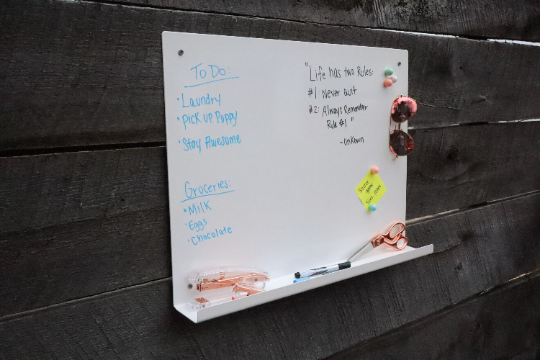 To Do:
· Laundry
· Pick up Poppy
· Stay Awesome
Groceries:
· Milk
· Eggs
· Chocolate
"Life has two Rules:
#1 Never Quit
#2: Always Remember
Rule #1"
-Unknown